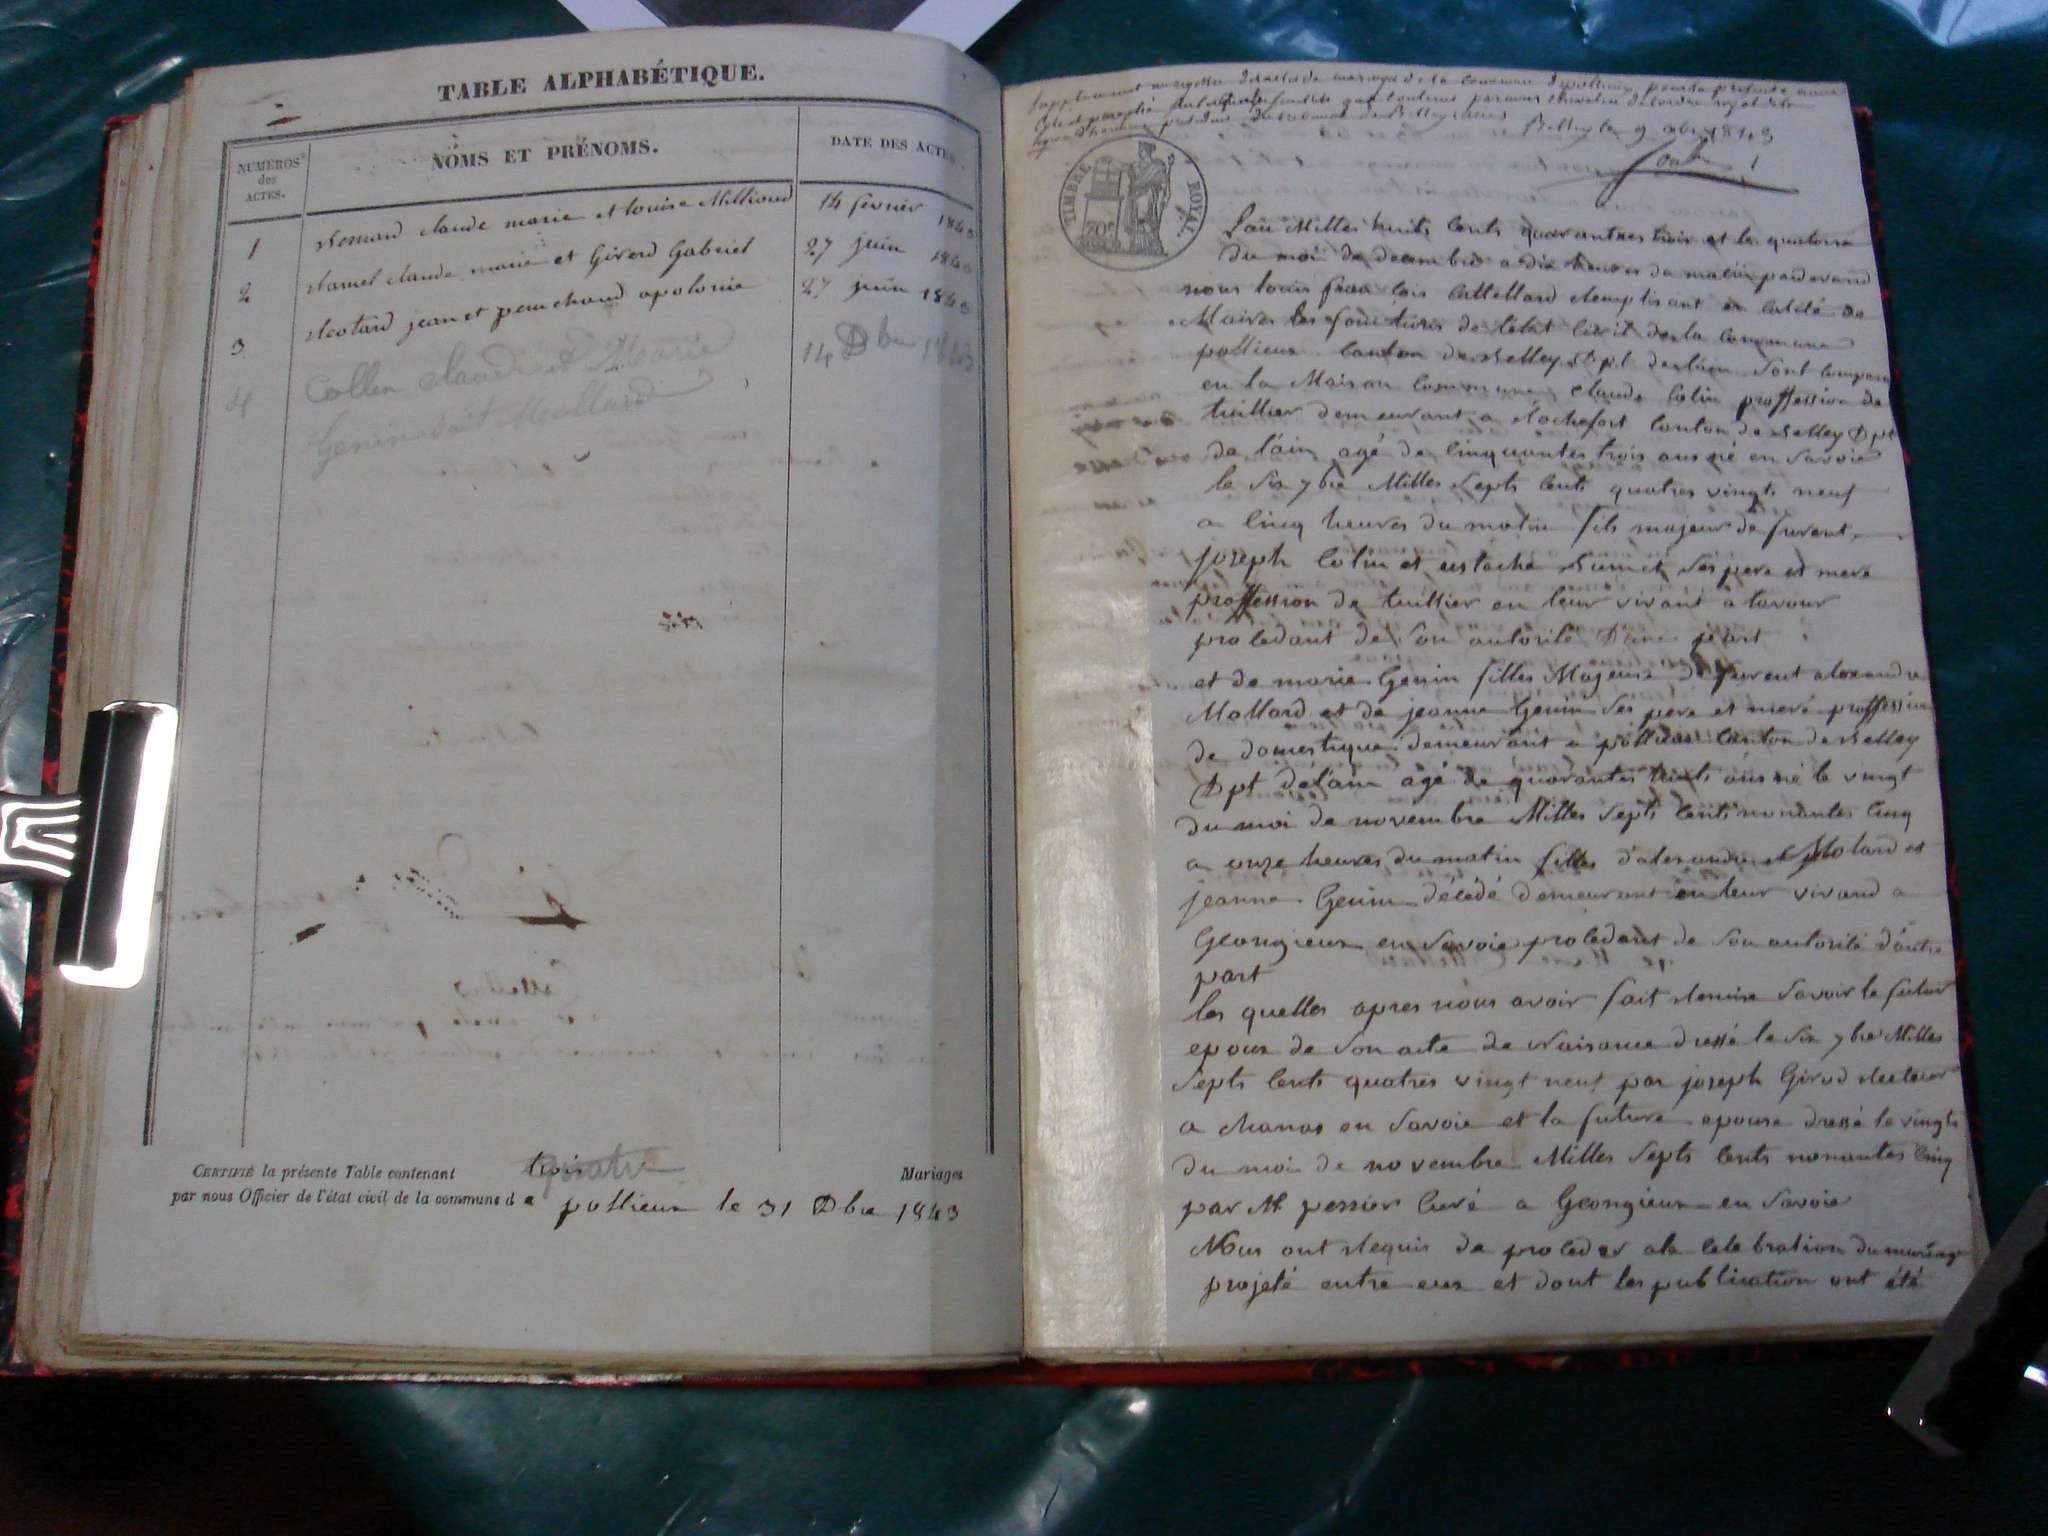 TABLE ALPHABÉTIQUE.
NUMÉROS des ACTES.
NOMS ET PRÉNOMS.
DATE DES ACTES.
1 claude marie et Louise Millioud 14 février 1843
2 claude marie et Giverd Gabriel 27 juin 1843
3 jean et penchaud apolonie 27 juin 1843
4 Collen Claude et Marie 14 Dbre 1843
Genin dit Mollard
CERTIFIÉ la présente Table contenant trois quatre Mariages
par nous Officier de l'état civil de la commune d e pollieux le 31 Dbre 1843
Belley le 9 1843
TIMBRE ROYAL
70c
L'an Milles huits Cents quarantres trois et le quatorse
Du moi de decembre a dix heures du matin pardevand
nous louis francois Cattelard Remplisant en calité de
Maire les fonctions de l'état Civil de la commune
pollieux Canton de Belley Dpt de l'ain Sont comparu
en la Maison Commune Claude Colin proffession de
tuillier demeurant a Rochefort Canton de Belley Dpt
de l'ain agé de Cinquantes trois ans né en Savoie
le Six 7bre Milles Septs Cents quatres vingts neuf
a Cinq heures du matin fils majeur de furent
joseph Colin et eustache ses pere et mere
proffession de tuillier en leur vivant a lavour
procedant de Son autorité D'une part
et de marie Genin filles Majeure de furent alexandre
Mollard et de jeanne Genin Ses pere et mere proffession
de domestique demeurant a pollieux Canton de Belley
Dpt de l'ain agé de quarantes huits ans né le vingt
du moi de novembre Milles Septs Cents nonantes Cinq
a onze heures du matin filles d'alexandre Molard et
jeanne Genin décédé demeurant en leur vivand a
Geongieux en Savoie procedant de Son autorité d'autre
part
les quelles apres nous avoir fait Remise Savoir le futur
epoux de Son acte de Naisance dressé le Six 7bre Milles
Septs Cents quatres vingt neuf par joseph Girod Recteur
a Chanas en Savoie et la future epouse dressé le vingts
du moi de novembre Milles Septs Cents nonantes Cinq
par M pessier Curé a Geongieux en Savoie
Nous ont Requis de proceder a la celebration du mariage
projeté entre eux et dont les publication ont été